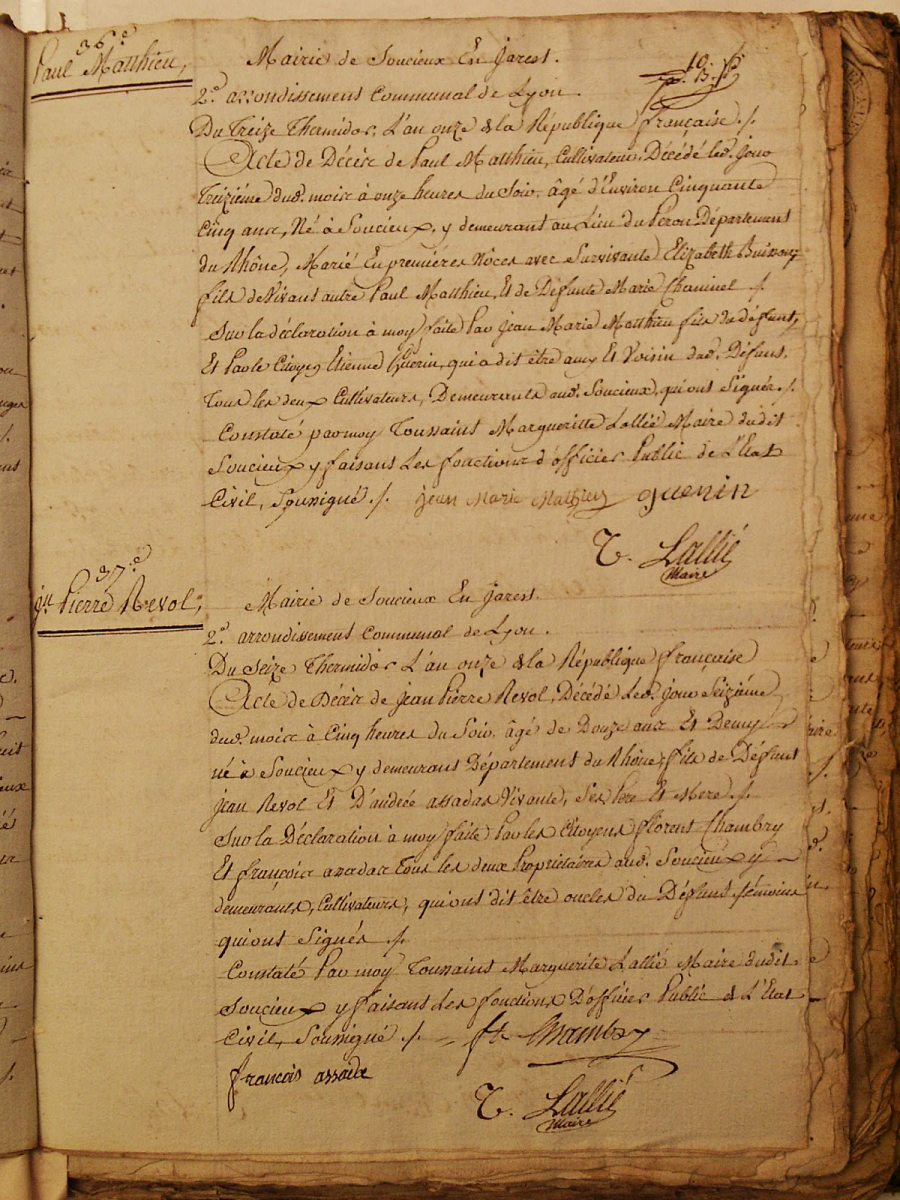 36.e
Paul Matthieu,
Mairie de Soucieux En Jarest.
2.d arrondissement Communal de Lyon.
Du Treize Thermidor, L'an onze de la République française ./.
Acte de Décès de Paul Matthieu, Cultivateur, Décédé led. jour
Treizième dud. mois à onze heures du Soir, âgé d'Environ Cinquante
Cinq ans, Né à Soucieux, y demeurant au Lieu du Peron Département
du Rhône, Marié En premières Nôces avec Survivante Elizabeth
fils de Vivant autre Paul Matthieu, Et de Défunte Marie Chaninel ./.
Sur la déclaration à moy faite Par jean Marie Matthieu fils du défunt,
Et Par le Citoyen Etienne Guerin, qui a dit être amy Et Voisin dud. Défunt,
Tous les deux Cultivateurs, Demeurants aud. Soucieux, qui ont Signés ./.
Constaté par moy Toussaint Margueritte Lallié Maire dudit
Soucieux y faisant Les fonctions d'officier Public de L'Etat
Civil, Soussigné ./. jean Marie Mathieu guenin
T. Lallié
Maire
37.e
jn Pierre Revol,
Mairie de Soucieux En Jarest.
2.d arrondissement Communal de Lyon.
Du Seize Thermidor L'an onze de la République française
Acte de Décès de jean Pierre Revol, Décédé Led. jour Seizième
dud. mois à Cinq heures du Soir, âgé de Douze ans Et Demy
né à Soucieux y demeurant Département du Rhône, fils de Défunt
jean Revol Et D'andrée assadas Vivante, Ses Pere Et Mere ./.
Sur la Déclaration à moy faite Par les Citoyens florent Chambry
Et françois assadas Tous les deux Propriétaires aud. Soucieux y
demeurants, Cultivateurs, qui ont dit être oncles du Défunt, témoins
qui ont Signés ./.
Constaté Par moy Toussaint Marguerite Lallié Maire dudit
Soucieux y faisant Les fonctions D'officier Public de L'Etat
Civil, Soussigné ./. ft Chambry
françois assade
T. Lallié
Maire